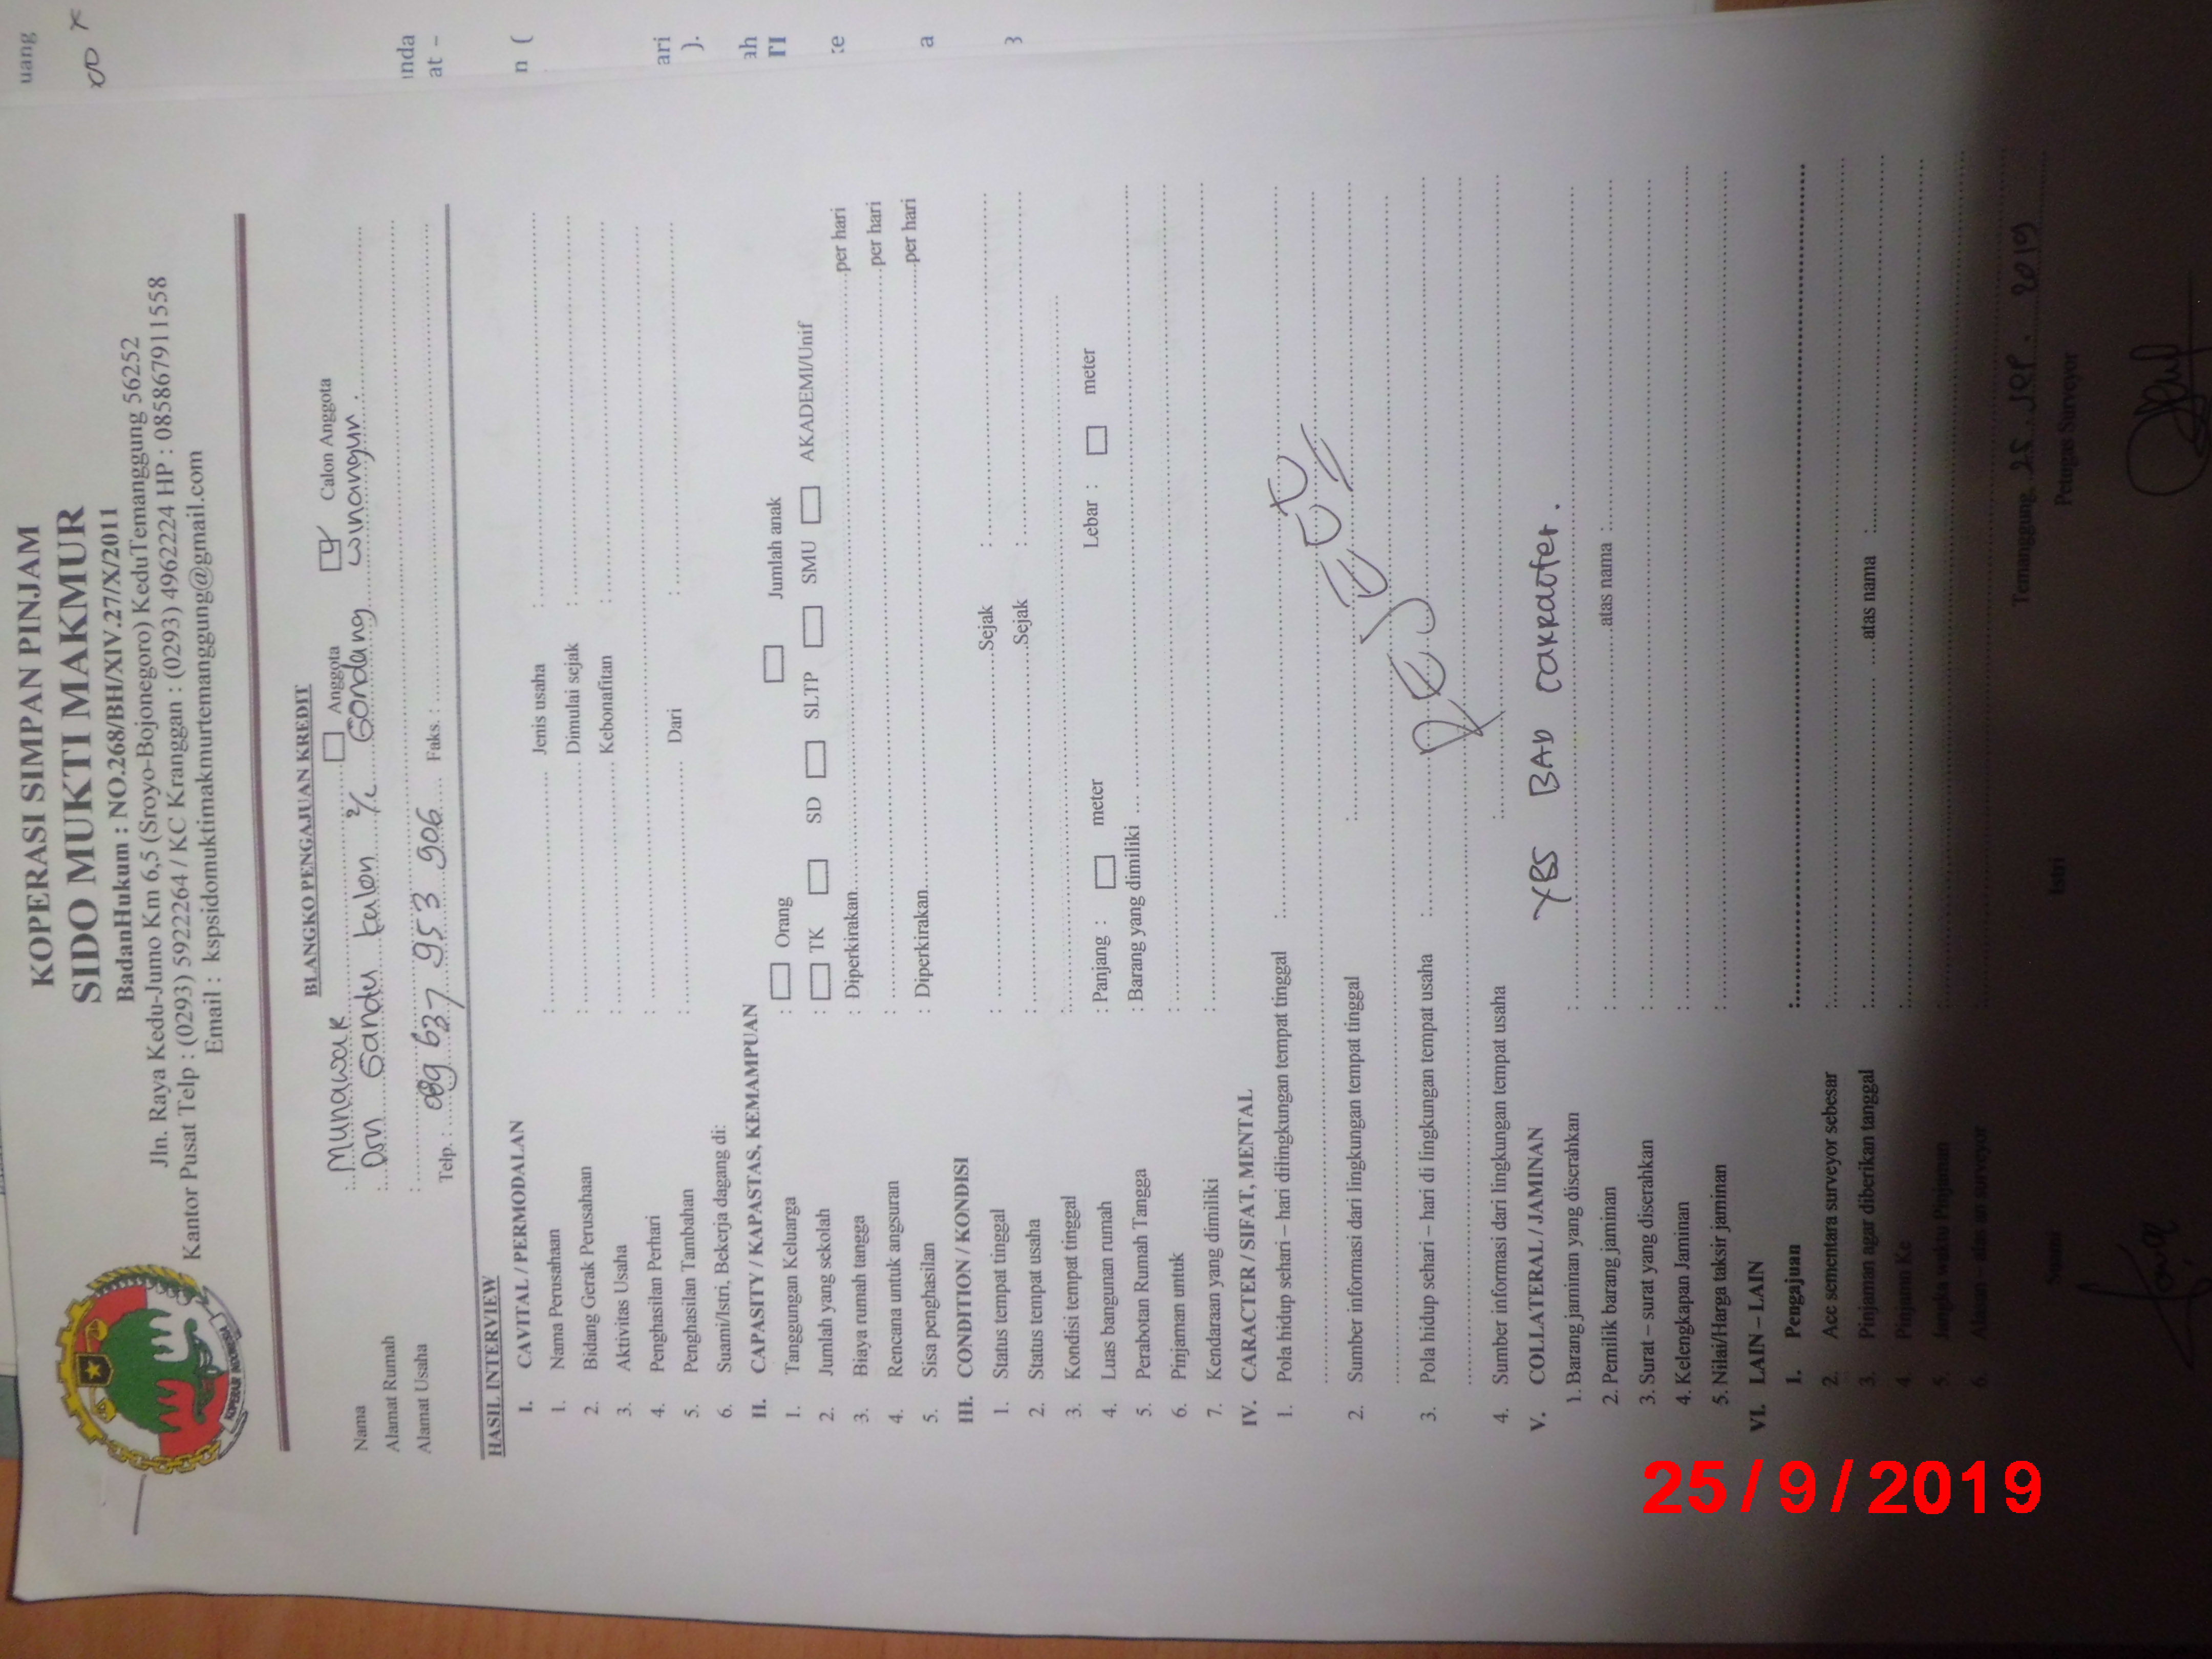 KOPERASI SIMPAN PINJAM
SIDO MUKTI MAKMUR
BadanHukum : NO.268/BH/XIV.27/X/2011
Jln. Raya Kedu-Jumo Km 6,5 (Sroyo-Bojonegoro) KeduTemanggung 56252
Kantor Pusat Telp : (0293) 5922264 / KC Kranggan : (0293) 4962224 HP : 085867911558
Email : kspsidomuktimakmurtemanggung@gmail.com
KOPERASI INDONESIA
BLANGKO PENGAJUAN KREDIT
Nama : Munawar Anggota Calon Anggota
Alamat Rumah : Dsn Gandu kulon 2/2 Gondang winangun.
Alamat Usaha :
Telp. : 089 637 953 906 Faks. :
HASIL INTERVIEW
I. CAVITAL / PERMODALAN
1. Nama Perusahaan : Jenis usaha :
2. Bidang Gerak Perusahaan : Dimulai sejak :
3. Aktivitas Usaha : Kebonafitan :
4. Penghasilan Perhari :
5. Penghasilan Tambahan : Dari :
6. Suami/Istri, Bekerja dagang di:
II. CAPASITY / KAPASTAS, KEMAMPUAN
1. Tanggungan Keluarga : Orang Jumlah anak
2. Jumlah yang sekolah : TK SD SLTP SMU AKADEMI/Unif
3. Biaya rumah tangga : Diperkirakan per hari
4. Rencana untuk angsuran : per hari
5. Sisa penghasilan : Diperkirakan per hari
III. CONDITION / KONDISI
1. Status tempat tinggal : Sejak :
2. Status tempat usaha : Sejak :
3. Kondisi tempat tinggal :
4. Luas bangunan rumah : Panjang : meter Lebar : meter
5. Perabotan Rumah Tangga : Barang yang dimiliki
6. Pinjaman untuk :
7. Kendaraan yang dimiliki :
IV. CARACTER / SIFAT, MENTAL
1. Pola hidup sehari – hari dilingkungan tempat tinggal :
2. Sumber informasi dari lingkungan tempat tinggal :
3. Pola hidup sehari – hari di lingkungan tempat usaha :
4. Sumber informasi dari lingkungan tempat usaha :
V. COLLATERAL / JAMINAN
YBS BAD carracter.
1. Barang jaminan yang diserahkan :
2. Pemilik barang jaminan : atas nama :
3. Surat – surat yang diserahkan :
4. Kelengkapan Jaminan :
5. Nilai/Harga taksir jaminan :
VI. LAIN – LAIN
1. Pengajuan :
2. Acc sementara surveyor sebesar :
3. Pinjaman agar diberikan tanggal : atas nama :
4. Pinjaman Ke :
5. Jangka waktu Pinjaman :
6. Alasan – alasan surveyor
Temanggung, 25 . SEP . 2019
Suami Istri Petugas Surveyor
25 / 9 / 2019
uang
nda
at –
n (
ari
).
ah
ke
a
3